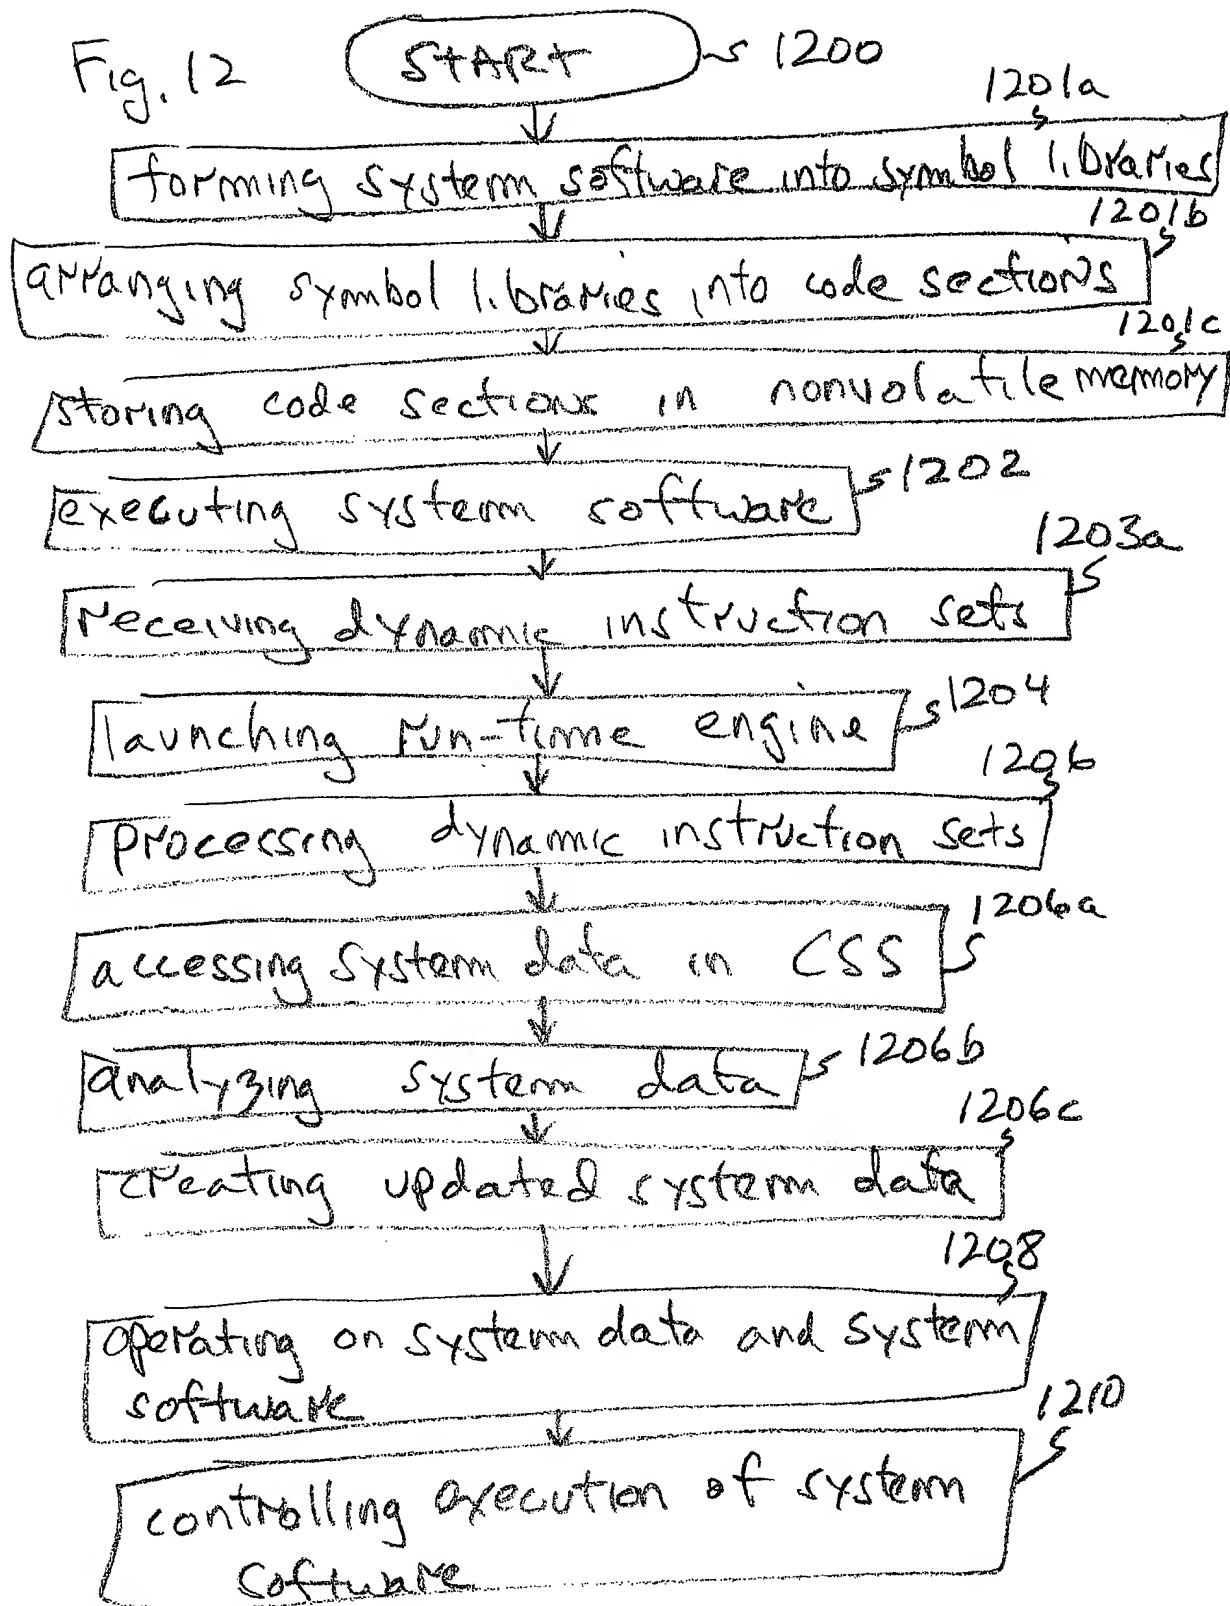 Fig. 12
START 1200
1201a
forming system software into symbol libraries
1201b
arranging symbol libraries into code sections
1201c
storing code sections in nonvolatile memory
executing system software 1202
1203a
receiving dynamic instruction sets
launching run-time engine 1204
1206
processing dynamic instruction sets
1206a
accessing system data in CSS
analyzing system data 1206b
1206c
creating updated system data
1208
operating on system data and system
software
1210
controlling execution of system
software